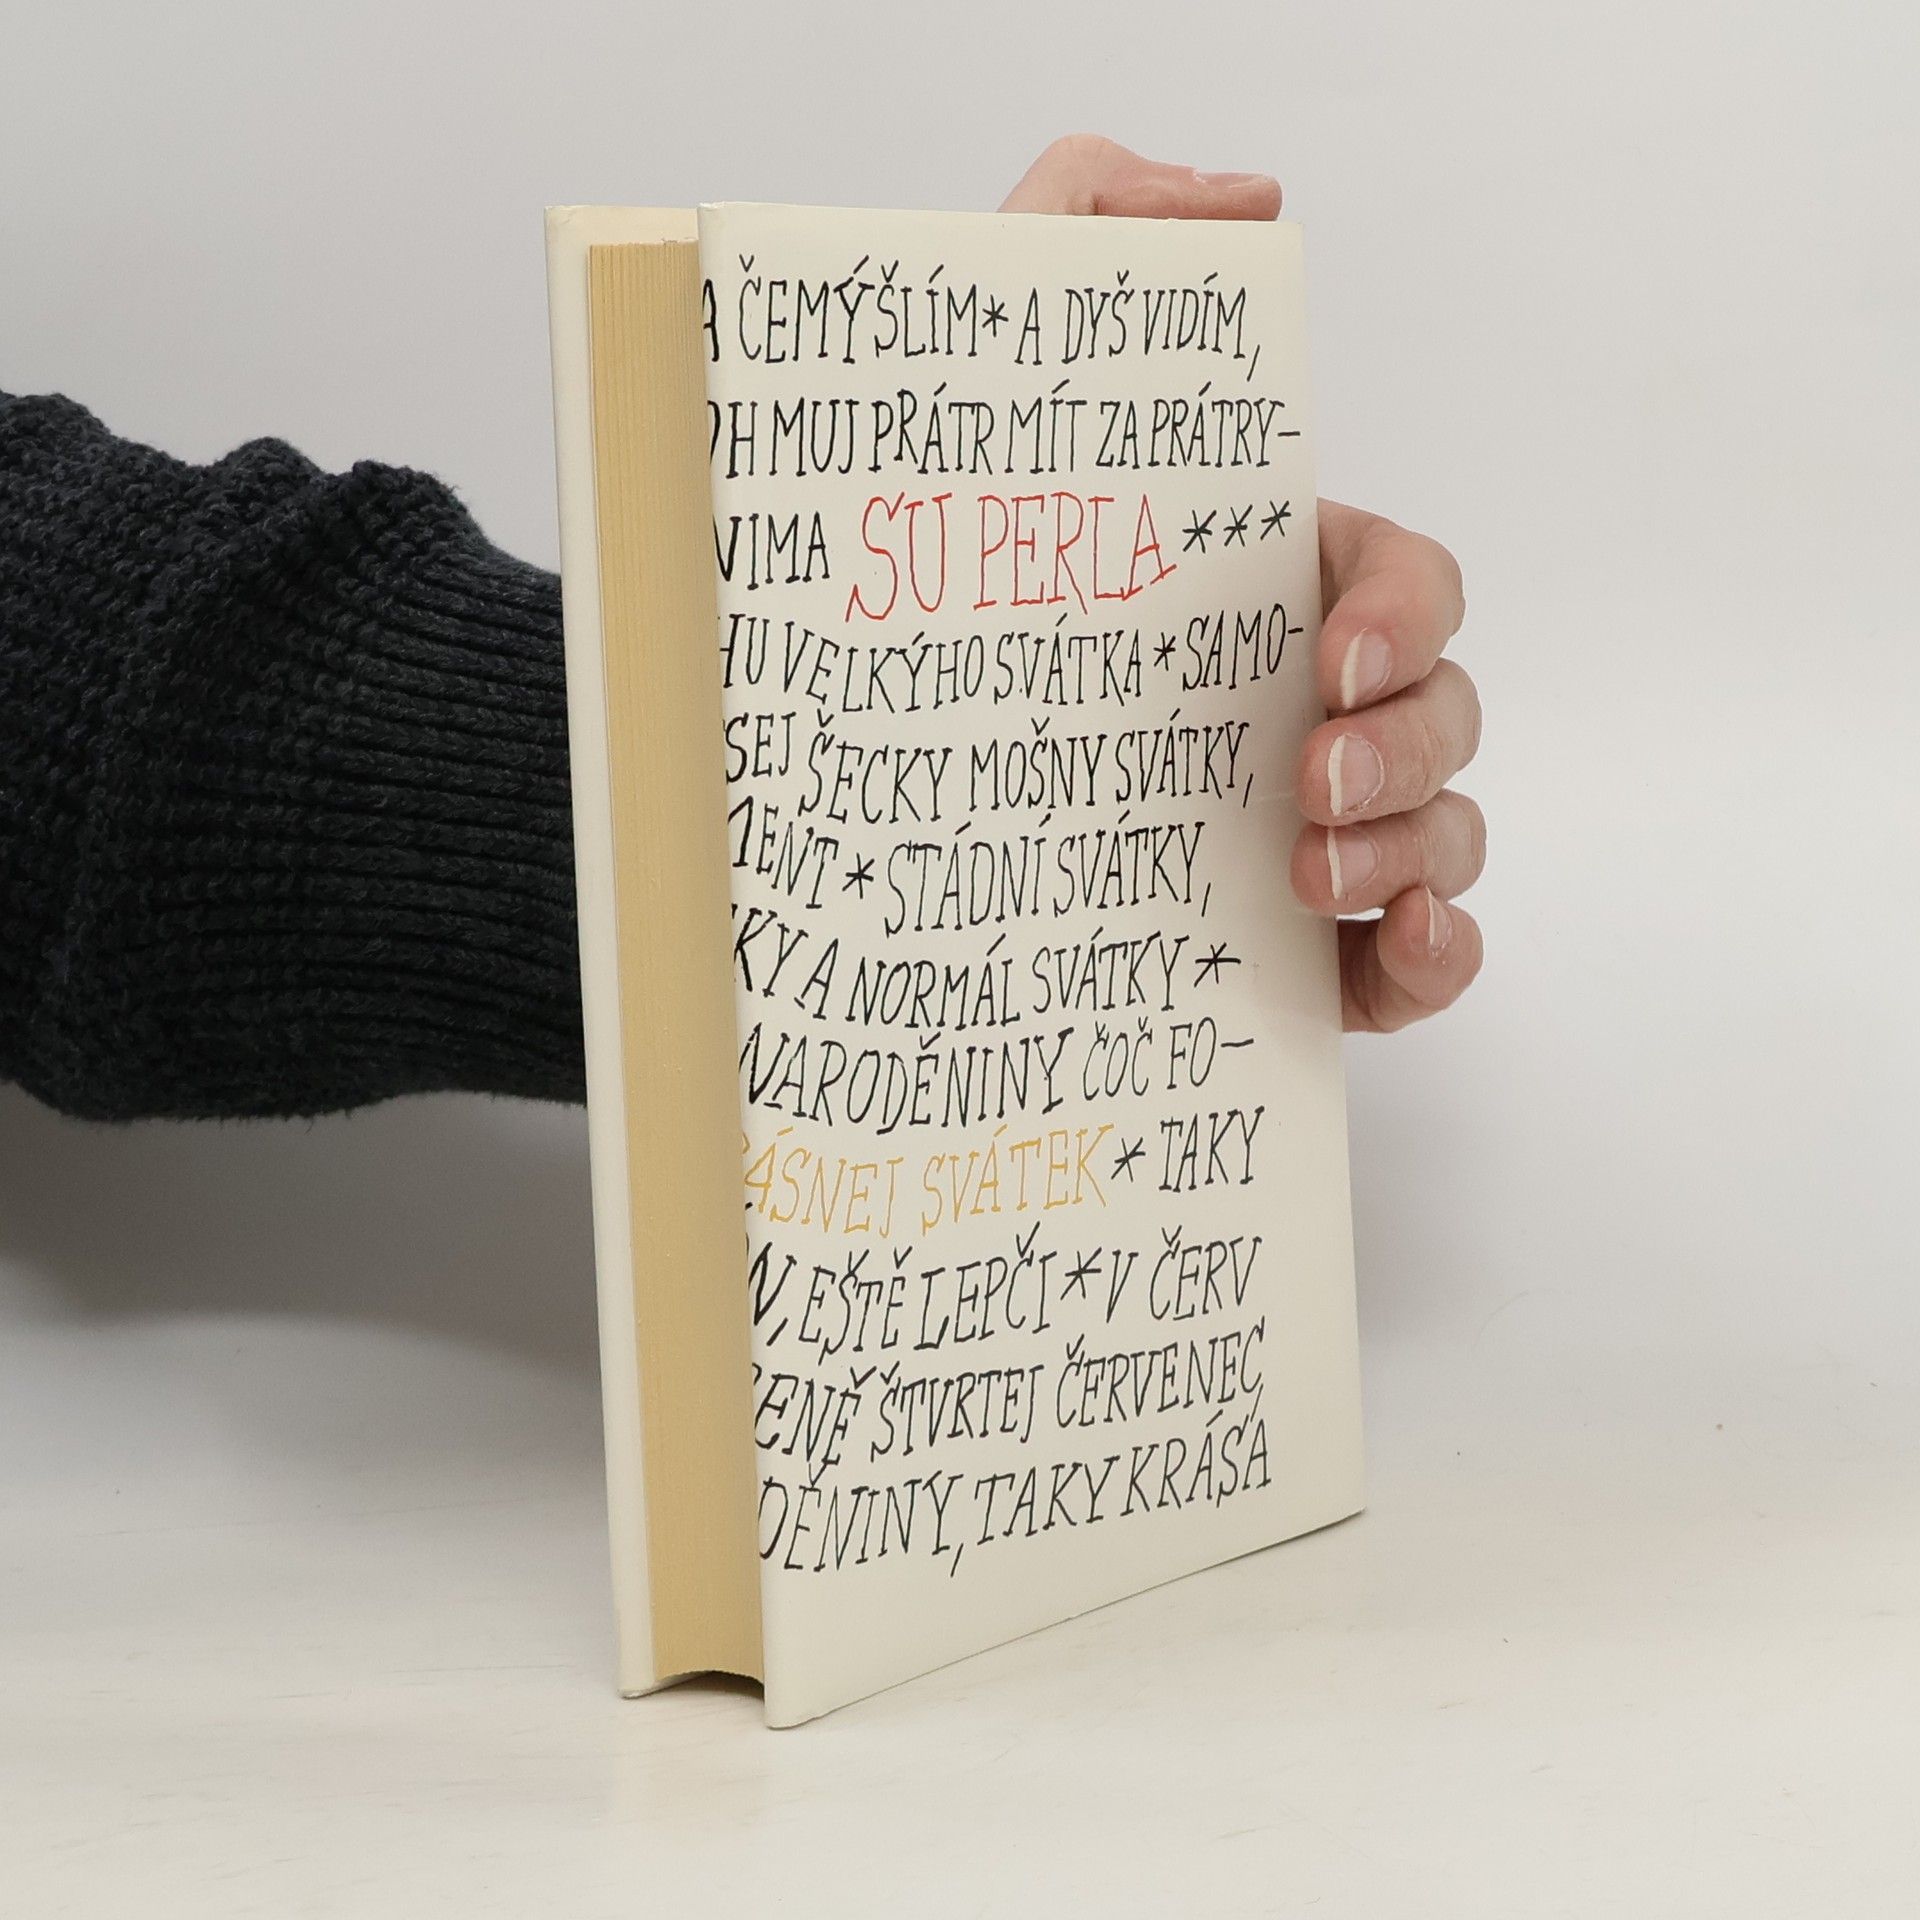 A ČEMÝŠLÍM * A DYŠ VIDÍM,
MUJ PRÁTR MÍT ZA PRÁTRY–
SU PERLA ***
VELKÝHO SVÁTKA * SAMO-
SEJ ŠECKY MOŠNY SVÁTKY,
MENT * STÁDNÍ SVÁTKY,
KY A NORMÁL SVÁTKY *
NARODĚNINY ČOČ FO–
ÁSNEJ SVÁTEK * TAKY
N, EŠTĚ LEPČI * V ČERV
ENĚ ŠTVRTEJ ČERVENEC,
DĚNINY, TAKY KRÁSA